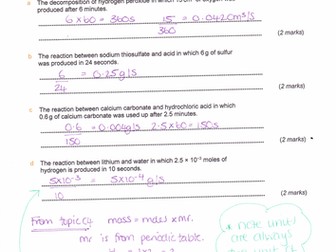 a The decomposition of hydrogen peroxide in which 15 cm³ of oxygen was
produced after 6 minutes.
6 x 60 = 360s 15 = 0.042cm³/s
360
(2 marks)
b The reaction between sodium thiosulfate and acid in which 6 g of sulfur
was produced in 24 seconds.
6 = 0.25g/s
24
(2 marks)
c The reaction between calcium carbonate and hydrochloric acid in which
0.6g of calcium carbonate was used up after 2.5 minutes.
0.6 = 0.004g/s 2.5 x 60 = 150s
150
(2 marks)
d The reaction between lithium and water in which 2.5 × 10⁻³ moles of
hydrogen is produced in 10 seconds.
5x10⁻³ = 5x10⁻⁴ g/s
10
(2 marks)
From topic C4 mass = moles x mr.
mr is from periodic table.
a note units
are always